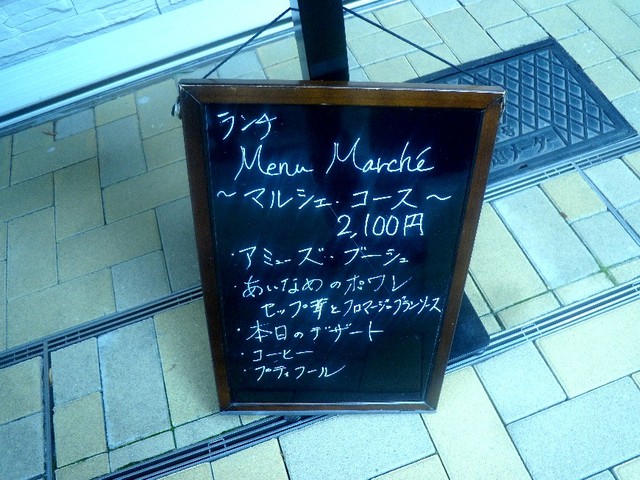 ランチ
Menu Marché
～マルシェ・コース～
2,100円
・アミューズ・ブーシュ
・あいなめのポワレ
セップ茸とフロマージュブランソース
・本日のデザート
・コーヒー
・プティフール